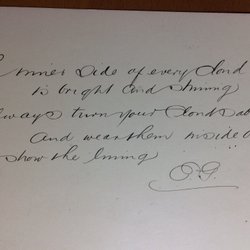 inner side of every cloud
Is bright and shining
always turn your clouds ab
And wear them inside o
show the lining
O. G.